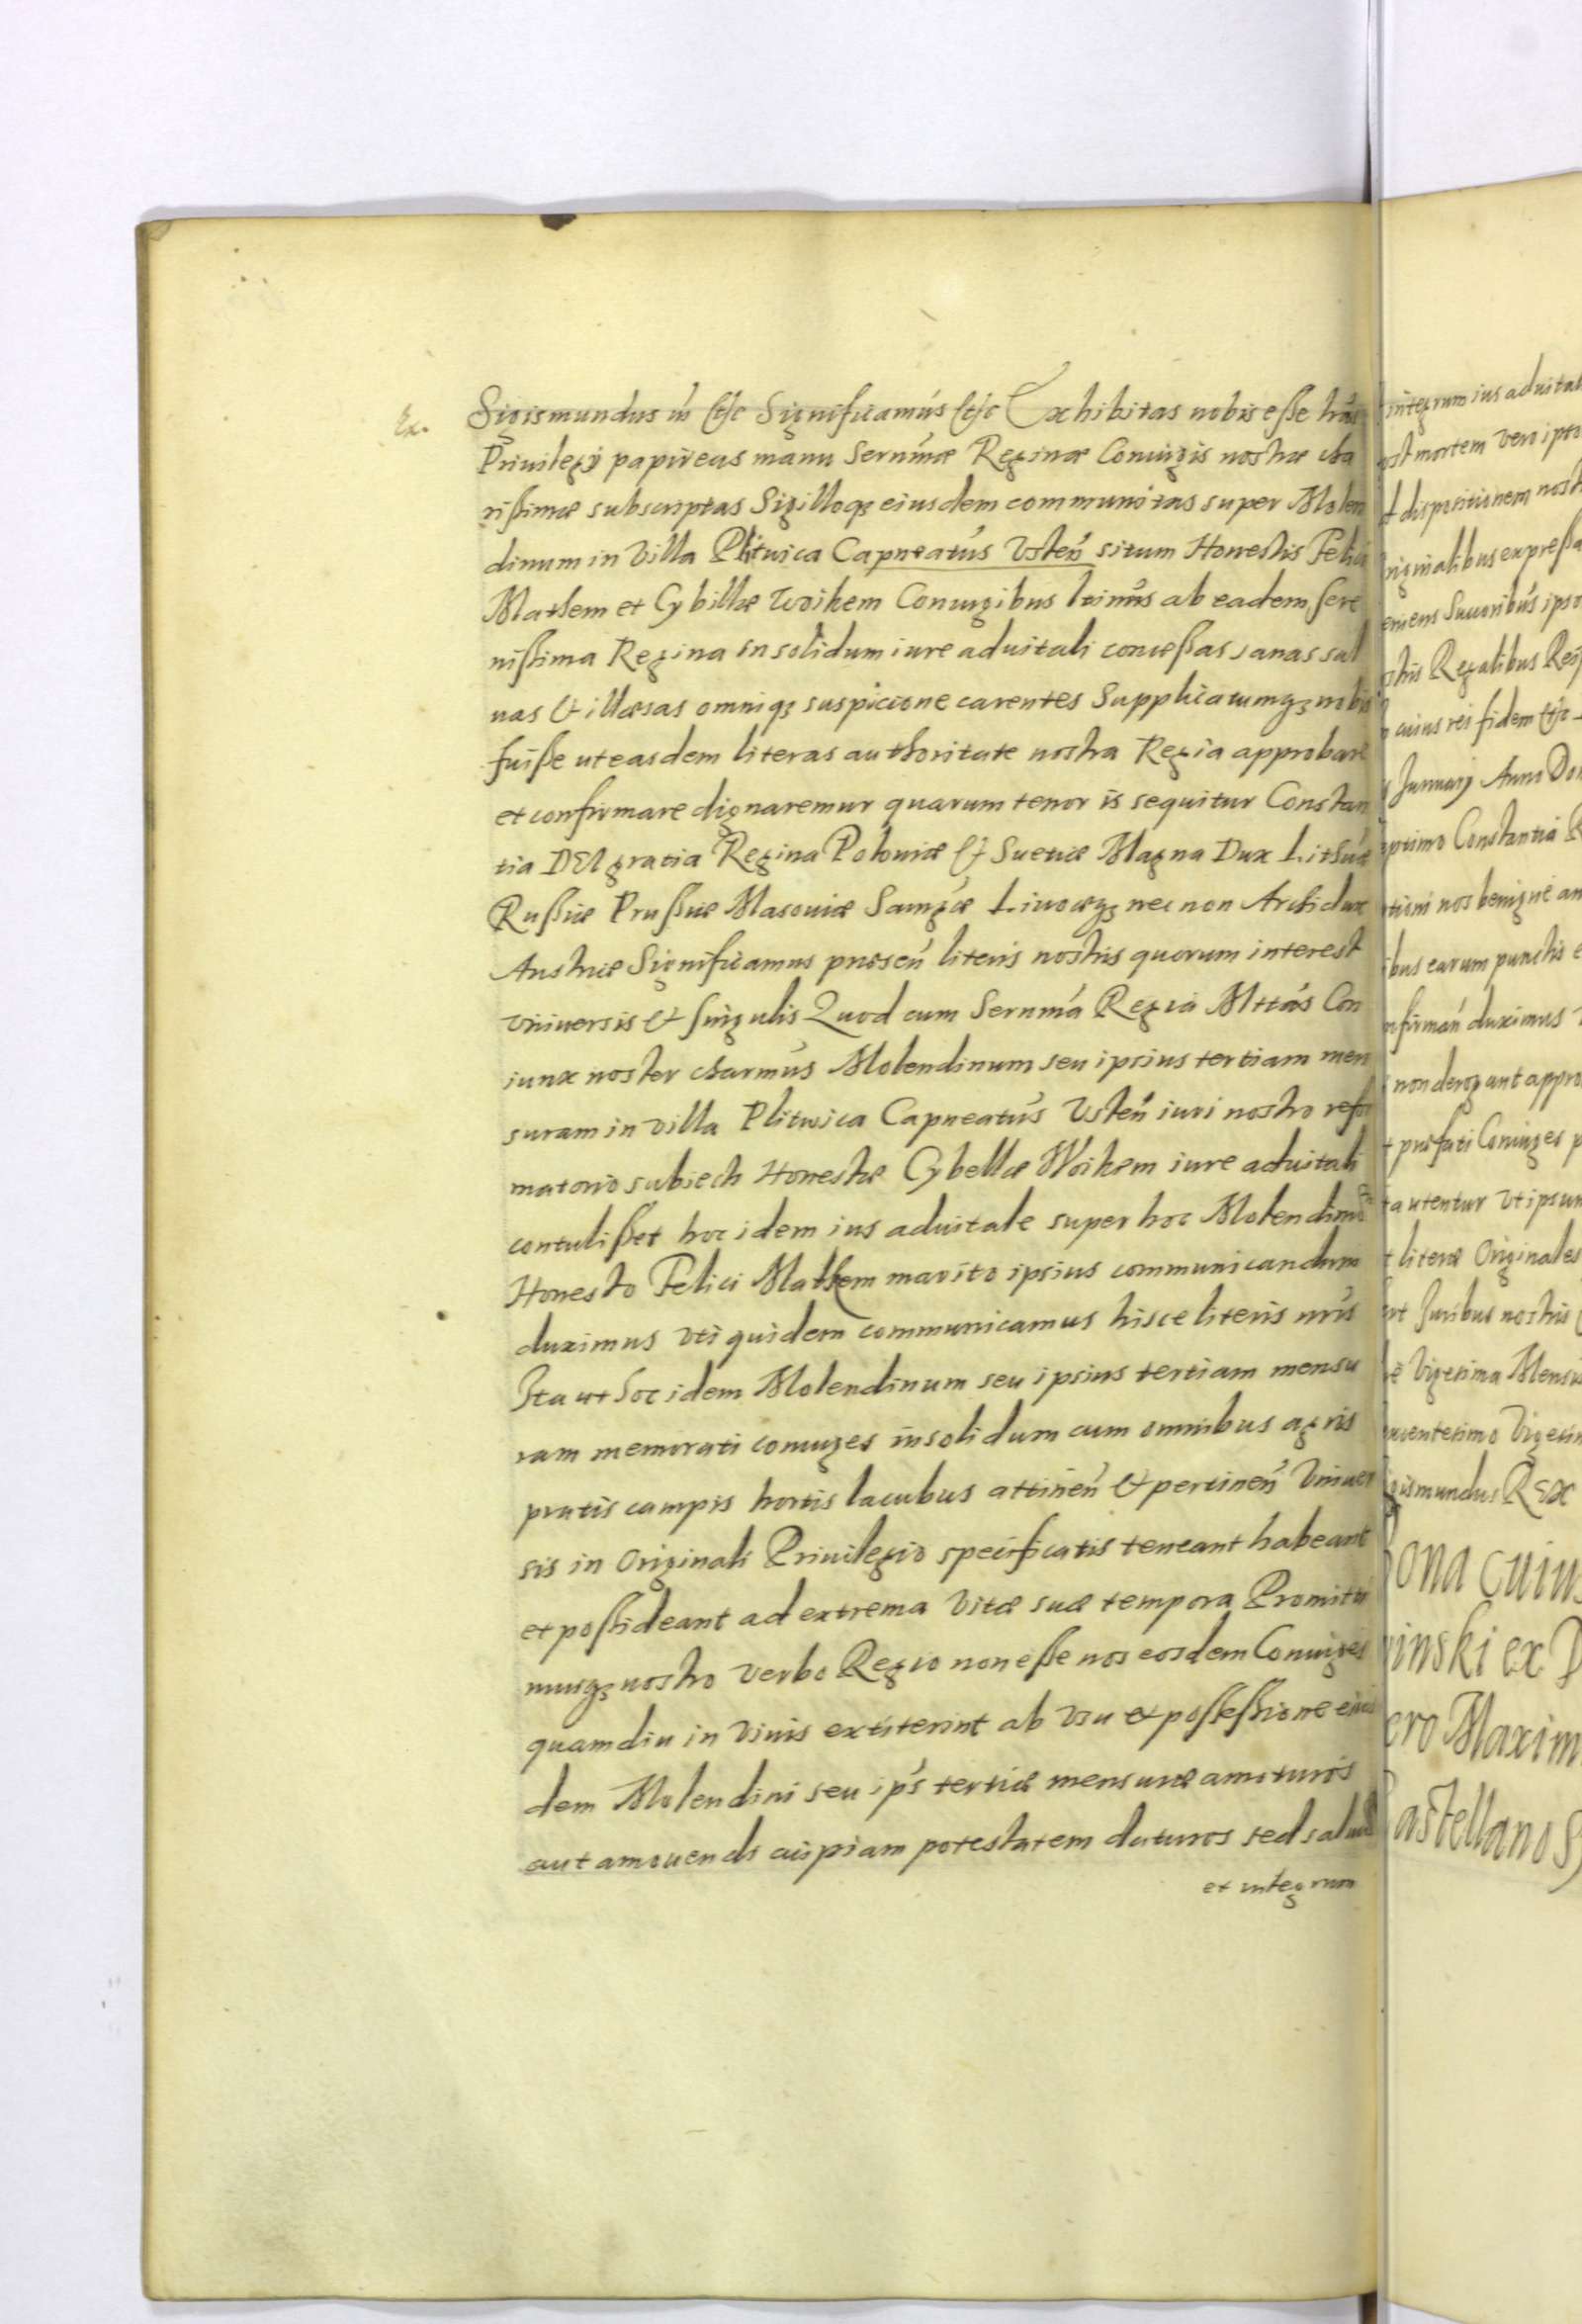 Ex. Sigismundus iii etc Significamus etc Exhibitas nobis esse lras
Priuilegij papireas manu Sernmæ Reginæ Coniugis nostræ cha
rißimæ subscriptas Sigilloqz eiusdem communitas super Molen
dinum in Villa Plitwica Capneatus Vsten situm Honestis Felici
Mathem et Cybillæ Woihem Coniugibus
ab eadem Sere
nißima Regina in solidum iure aduitali conceßas sanas sal
uas et illæsas omniqz suspicione carentes Supplicatumqz nobis
fuiße ut easdem literas authoritate nostra Regia approbare
et confirmare dignaremur quarum tenor is sequitur Constan
tia DEI gratia Regina Poloniæ et Suetiæ Magna Dux Lithuæ
Rußiæ Prußiæ Masouiæ Samgæ Liuoæqz nec non Archidux
Austriæ Significamus præsen literis nostris quorum interest
vniuersis et singulis Quod cum Sernma Regia Mttas Con
iunx noster charmus Molendinum seu ipsius tertiam men
suram in villa Plitwica Capneatus Vsten iuri nostro refor
matorio subiecti Honestæ Cybellæ Woihem iure aduitali
contulißet hoc idem ius aduitale super hoc Molendino
Honesto Felici Mathem marito ipsius communicandum
duximus vti quidem communicamus hisce literis nris
Ita ut hoc idem Molendinum seu ipsius tertiam mensu
ram memorati coniuges insolidum cum omnibus agris
pratis campis hortis lacubus attinen et pertinen Vniuer
sis in Originali Priuilegio specificatis teneant habeant
et poßideant ad extrema Vitæ suæ tempora Promitti
musqz nostro verbo Regio non eße nos eosdem Coniuges
quamdiu in viuis extiterint ab vsu et poßeßione eius
dem Molendini seu ips tertiæ mensuræ amoturos
aut amouendi cuipiam potestatem daturos sed saluum
et integrum
integrum ius aduital
ost mortem vero ipso
d dispositionem nost
riginalibus expreßa
Sucoribus ipso
ostris Regalibus Reip
cuius rei fidem etc
Januarij Anno Do
eptimo Constantia R
tioni nos benigne an
ibus earum punctis e
nfirman duximus
non derogant appro
t præfati Coniuges p
ta utentur Vt ipsum
t literæ Originales
nt Juribus nostris
Vigesima Mensis
ucentesimo Vigesim
gismundus REX
ona cuius
inski ex D
ero Maxim
astellano S